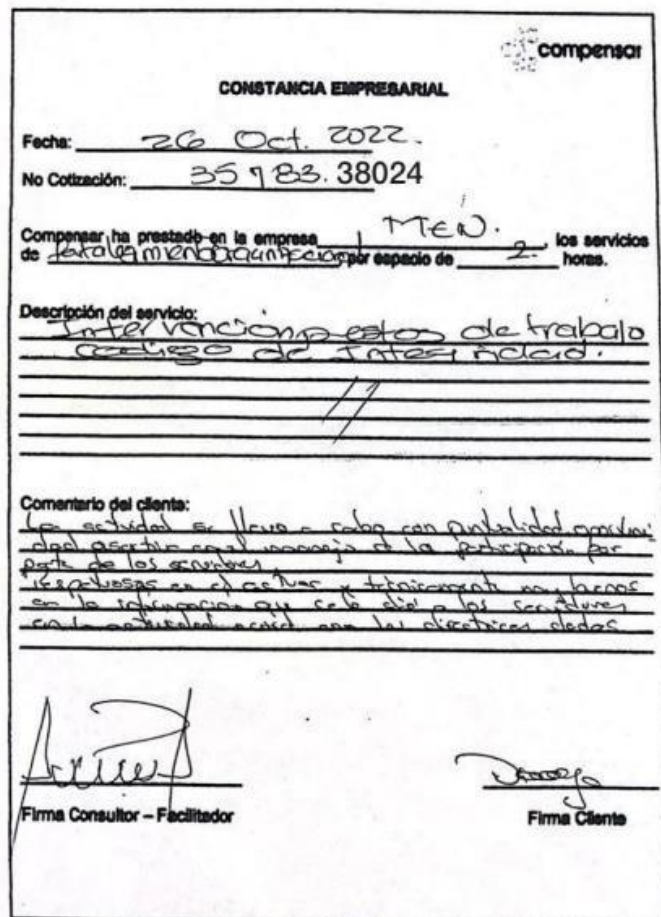 compensar
CONSTANCIA EMPRESARIAL
Fecha: 26 Oct. 2022.
No Cotización: 35783. 38024
Compensar ha prestado en la empresa MEN. los servicios
de por espacio de 2. horas.
Descripción del servicio:
Intervencion puestos de trabajo
codigo de Integridad.
Comentario del cliente:
La actividad se llevo a cabo con puntualidad
en el manejo de la participación por
parte de los servidores,
respetuosos en el actuar y técnicamente muy buenos
en la información que se le dió a los servidores
las directrices dadas
Firma Consultor – Facilitador
Firma Cliente